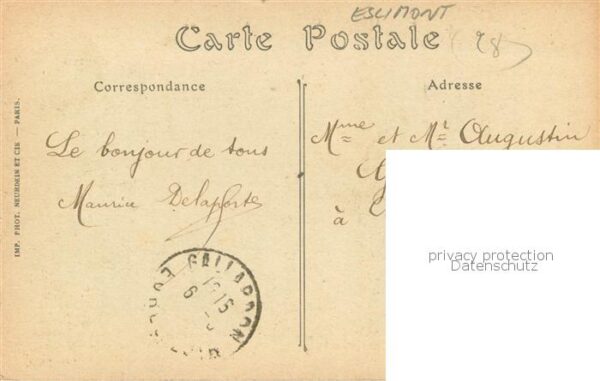 ESLIMONT
Carte Postale
(28)
Correspondance
Adresse
Le bonjour de tous
Maurice Delaporte
Mme et Mr Augustin
à
IMP. PHOT. NEURDEIN ET CIE — PARIS.
GALLARDON
privacy protection
Datenschutz